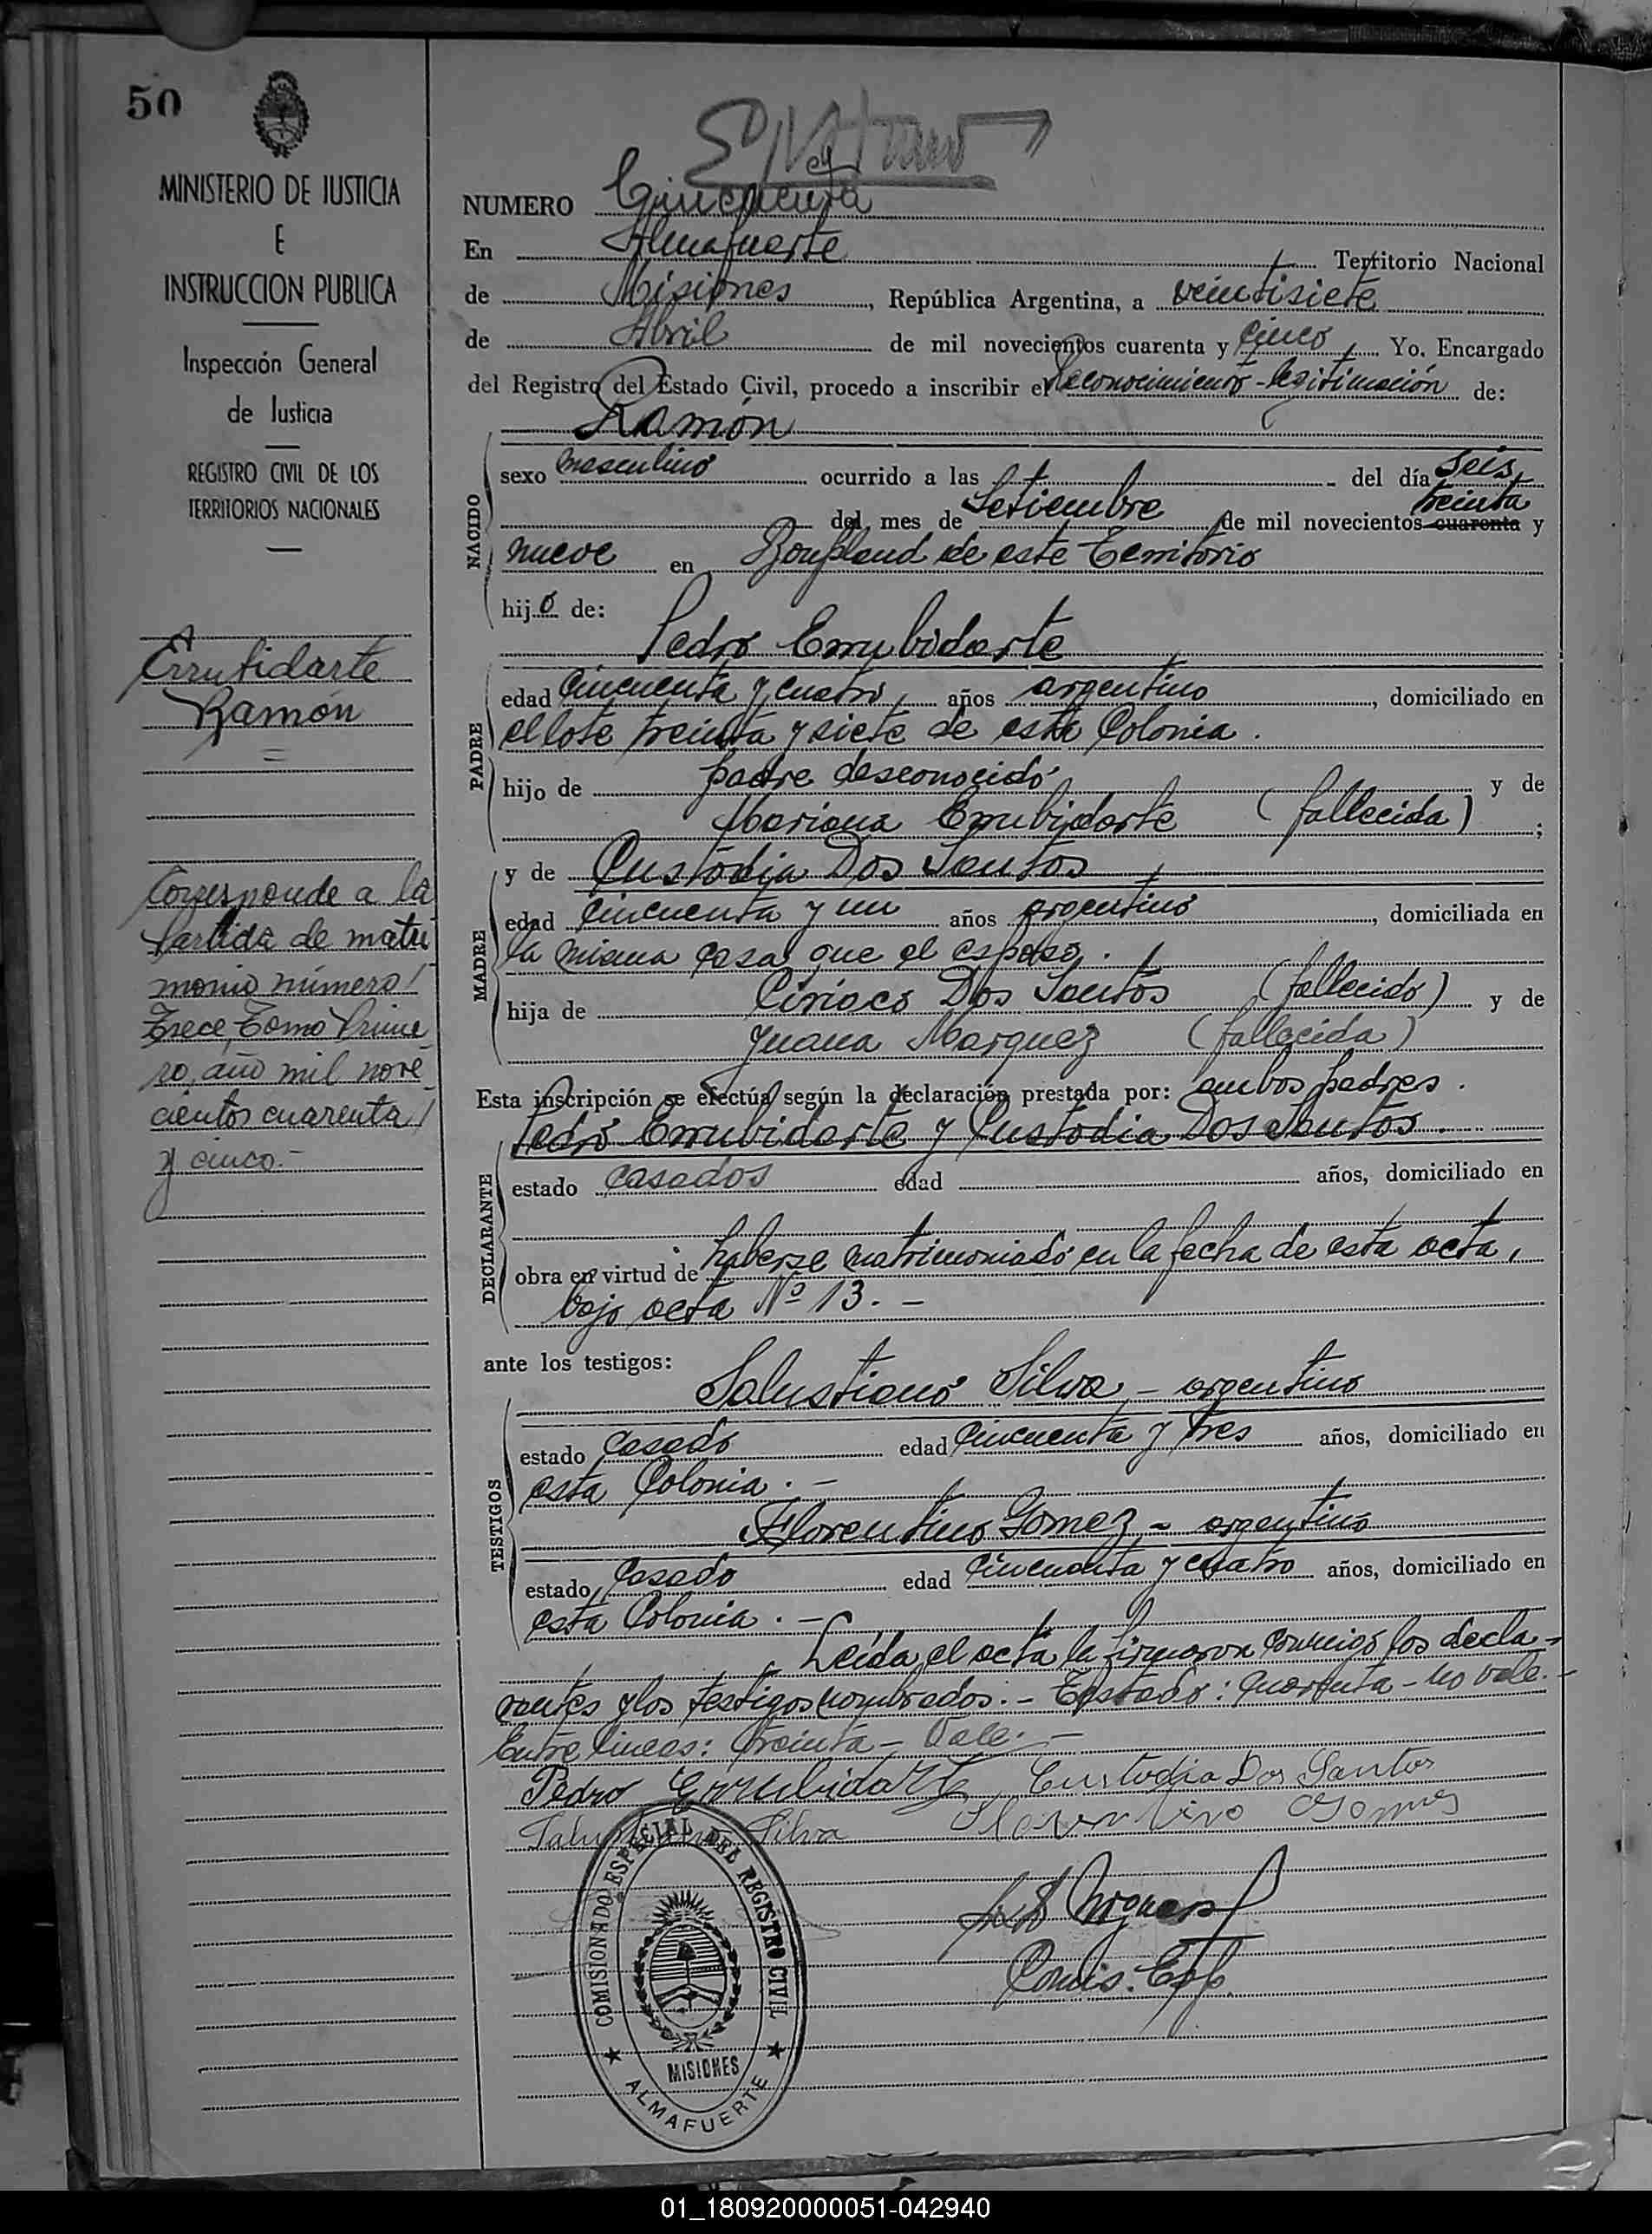 50
MINISTERIO DE JUSTICIA
E
INSTRUCCION PUBLICA
Inspección General
de Justicia
REGISTRO CIVIL DE LOS
TERRITORIOS NACIONALES
Errubidarte
Ramón
Corresponde a la
Partida de matri
monio número
Trece, Tomo Prime
ro, año mil nove
cientos cuarenta
y cinco.-
NUMERO Cincuenta
En Almafuerte Territorio Nacional
de Misiones, República Argentina, a veintisiete
de Abril de mil novecientos cuarenta y cinco, Yo, Encargado
del Registro del Estado Civil, procedo a inscribir el Reconocimiento-legitimación de:
Ramón
NACIDO
sexo masculino ocurrido a las del día seis,
del mes de Setiembre de mil novecientos cuarenta treinta y
nueve en Bonpland de este Territorio
hijo de:
Pedro Errubidarte
PADRE
edad cincuenta y cuatro, años argentino, domiciliado en
el lote treinta y siete de esta Colonia.
hijo de padre desconocido y de
Mariana Errubidarte (fallecida);
y de Custodia Dos Santos
MADRE
edad cincuenta y un años argentino, domiciliada en
la misma casa que el esposo.
hija de Ciriaco Dos Santos (fallecido) y de
Juana Marquez (fallecida)
Esta inscripción se efectúa según la declaración prestada por: ambos padres.
Pedro Errubidarte y Custodia Dos Santos.
DECLARANTE
estado casados edad años, domiciliado en
obra en virtud de haberse matrimoniado en la fecha de esta acta,
bajo acta Nº 13.-
ante los testigos:
Salustiano Silva - argentino
TESTIGOS
estado casado edad cincuenta y tres años, domiciliado en
esta Colonia.-
Florentino Gomez - argentino
estado casado edad cincuenta y cuatro años, domiciliado en
esta Colonia.-
Leída el acta la firmaron conmigo los decla-
rantes y los testigos nombrados.- Testado: cuarenta - no vale.-
Entre lineas: treinta - Vale.-
Pedro Errubidarte Custodia Dos Santos
Salustiano Silva Florentino Gomes
Comis. Esp.
COMISIONADO ESPECIAL DEL REGISTRO CIVIL
MISIONES
ALMAFUERTE
01_180920000051-042940